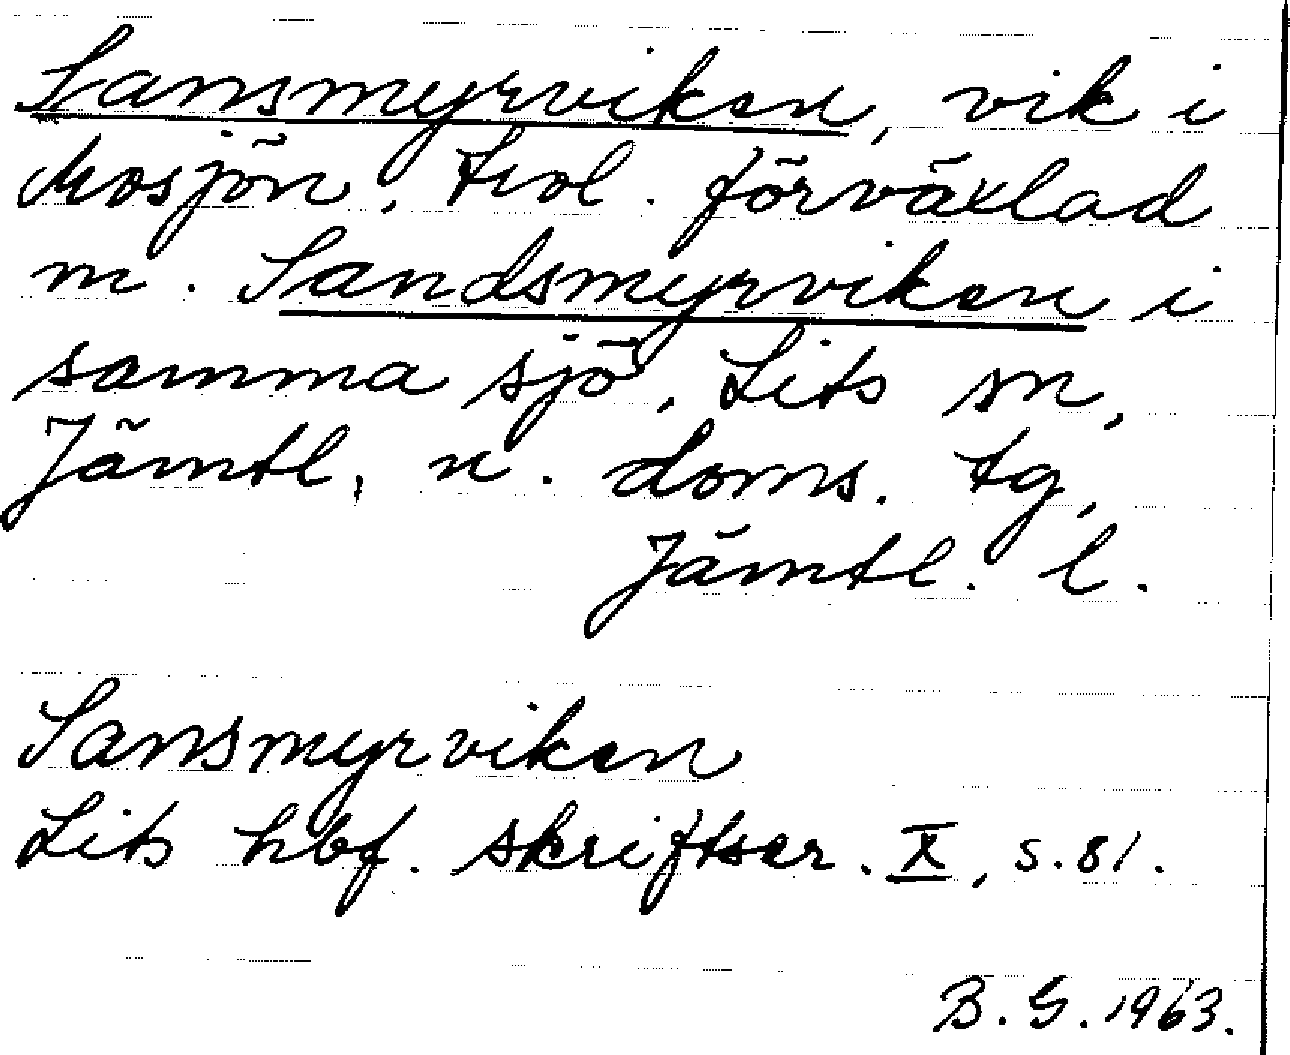 Sansmyrviken, vik i
Mosjön, trol. förväxlad
m. Sandsmyrviken i
samma sjö, Lits sn,
Jämtl, n. doms. tg,
Jämtl. l.
Sansmyrviken
Lits hbf. skriftser. X, s. 81.
B. G. 1963.